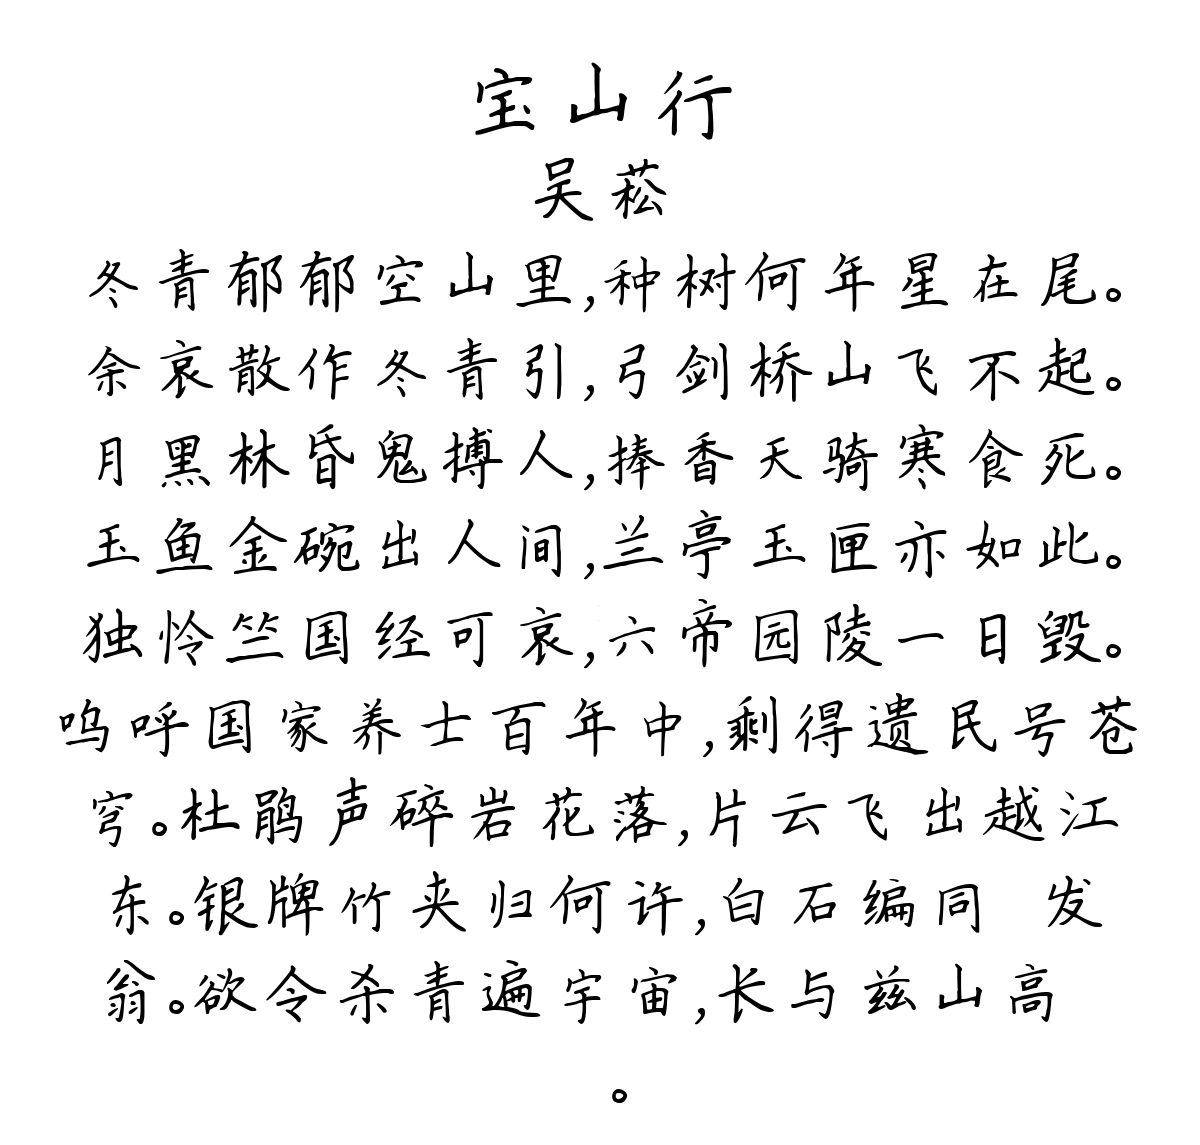 宝山行
吴菘
冬青郁郁空山里,种树何年星在尾。
余哀散作冬青引,弓剑桥山飞不起。
月黑林昏鬼搏人,捧香天骑寒食死。
玉鱼金碗出人间,兰亭玉匣亦如此。
独怜竺国经可哀,六帝园陵一日毁。
呜呼国家养士百年中,剩得遗民号苍
穹。杜鹃声碎岩花落,片云飞出越江
东。银牌竹夹归何许,白石编同 发
翁。欲令杀青遍宇宙,长与兹山高
。